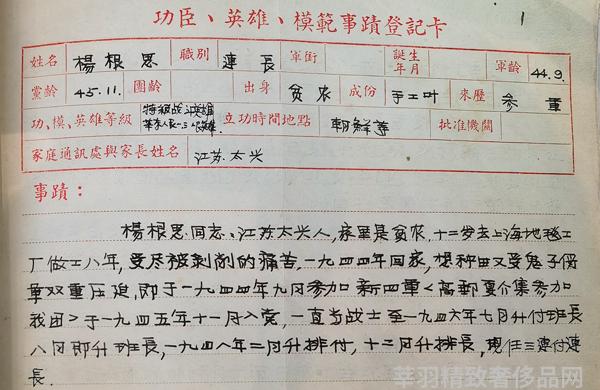 功臣、英雄、模範事蹟登記卡
1
姓名 楊根思 職別 連長 軍銜 誕生年月 軍齡 44.9.
黨齡 45.11. 團齡 出身 贫农 成份 手工叶 来歷 参軍
功、模、英雄等級 特級战斗英雄 華东人民一三英雄 立功時間地點 朝鮮等 批准機關
家庭通訊處與家長姓名 江苏太兴
事蹟：
楊根思同志、江苏太兴人，家里是贫农，十二岁去上海地毯工
厂做工八年，受尽被剥削的痛苦，一九四四年回家，想种田又受鬼子偽
軍双重压迫，即于一九四四年九月参加新四軍<高郵夏介集参加
我团>于一九四五年十一月入党，一直当战士至一九四六年七月升付班長
八月即升班長，一九四八年二月升排付，十二月升排長，現任三連付連
長.
莘羽精致奢侈品网